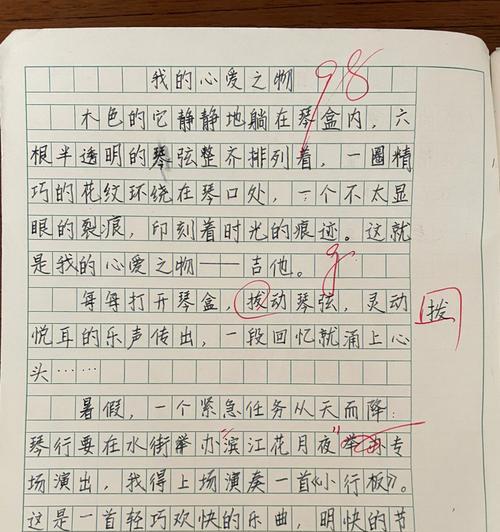 我的心爱之物
98
木色的它静静地躺在琴盒内，六
根半透明的琴弦整齐排列着，一圈精
巧的花纹环绕在琴口处，一个不太显
眼的裂痕，印刻着时光的痕迹。这就
是我的心爱之物——吉他。
每每打开琴盒，拨动琴弦，灵动
拨
悦耳的乐声传出，一段回忆就涌上心
头……
暑假，一个紧急任务从天而降：
琴行要在水街举办“滨江花月夜”专
场演出，我得上场演奏一首《小行板》。
这是一首轻巧欢快的乐曲，明快的节